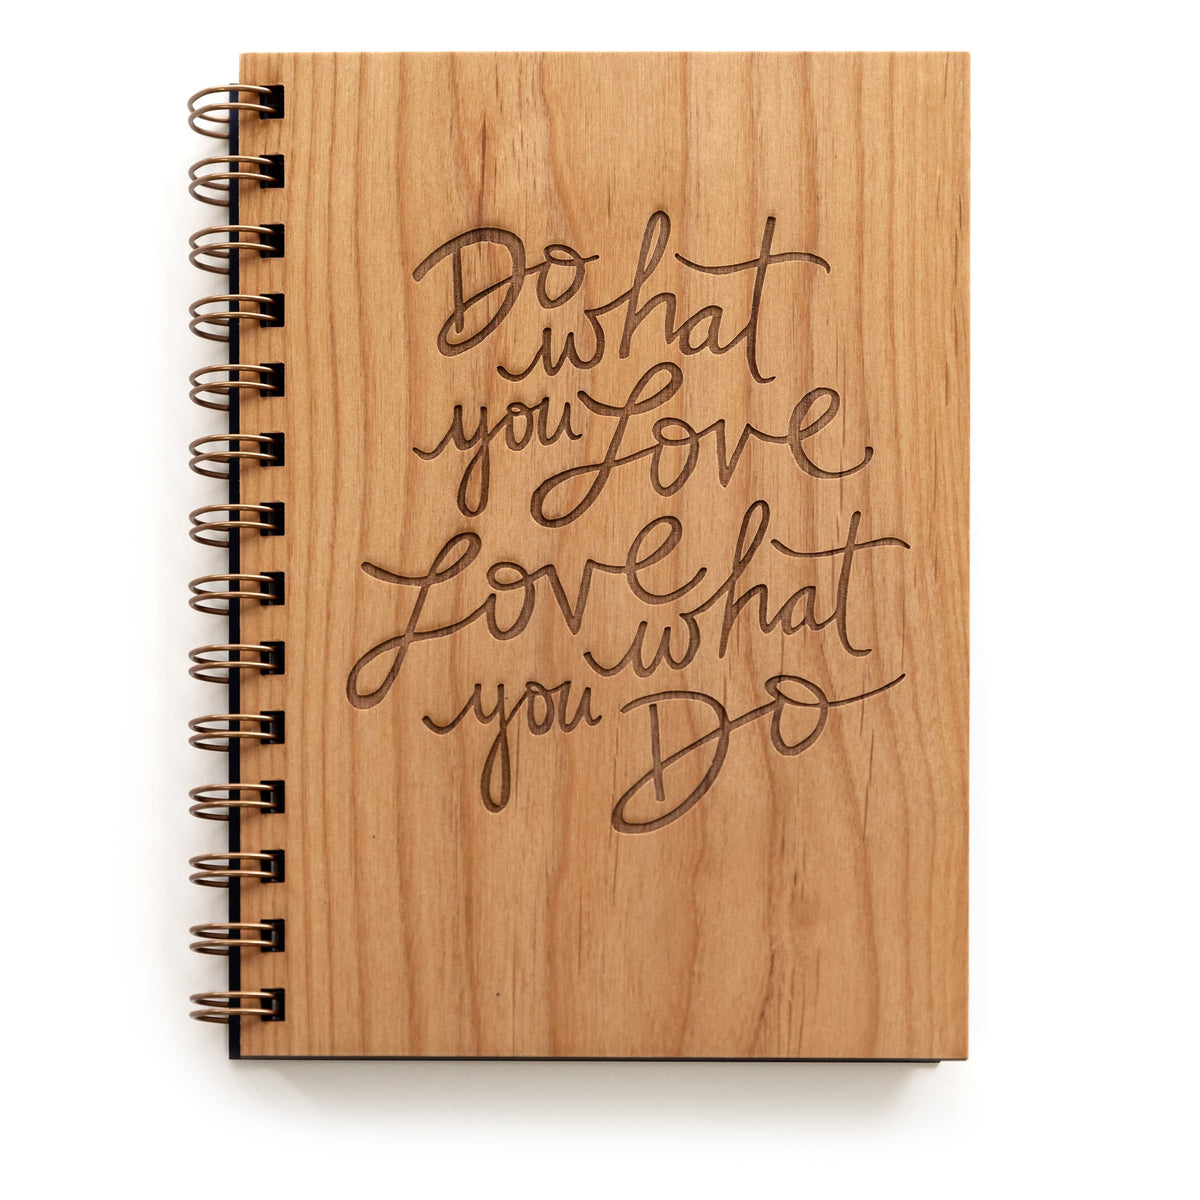 Do what
you Love
Love what
you Do